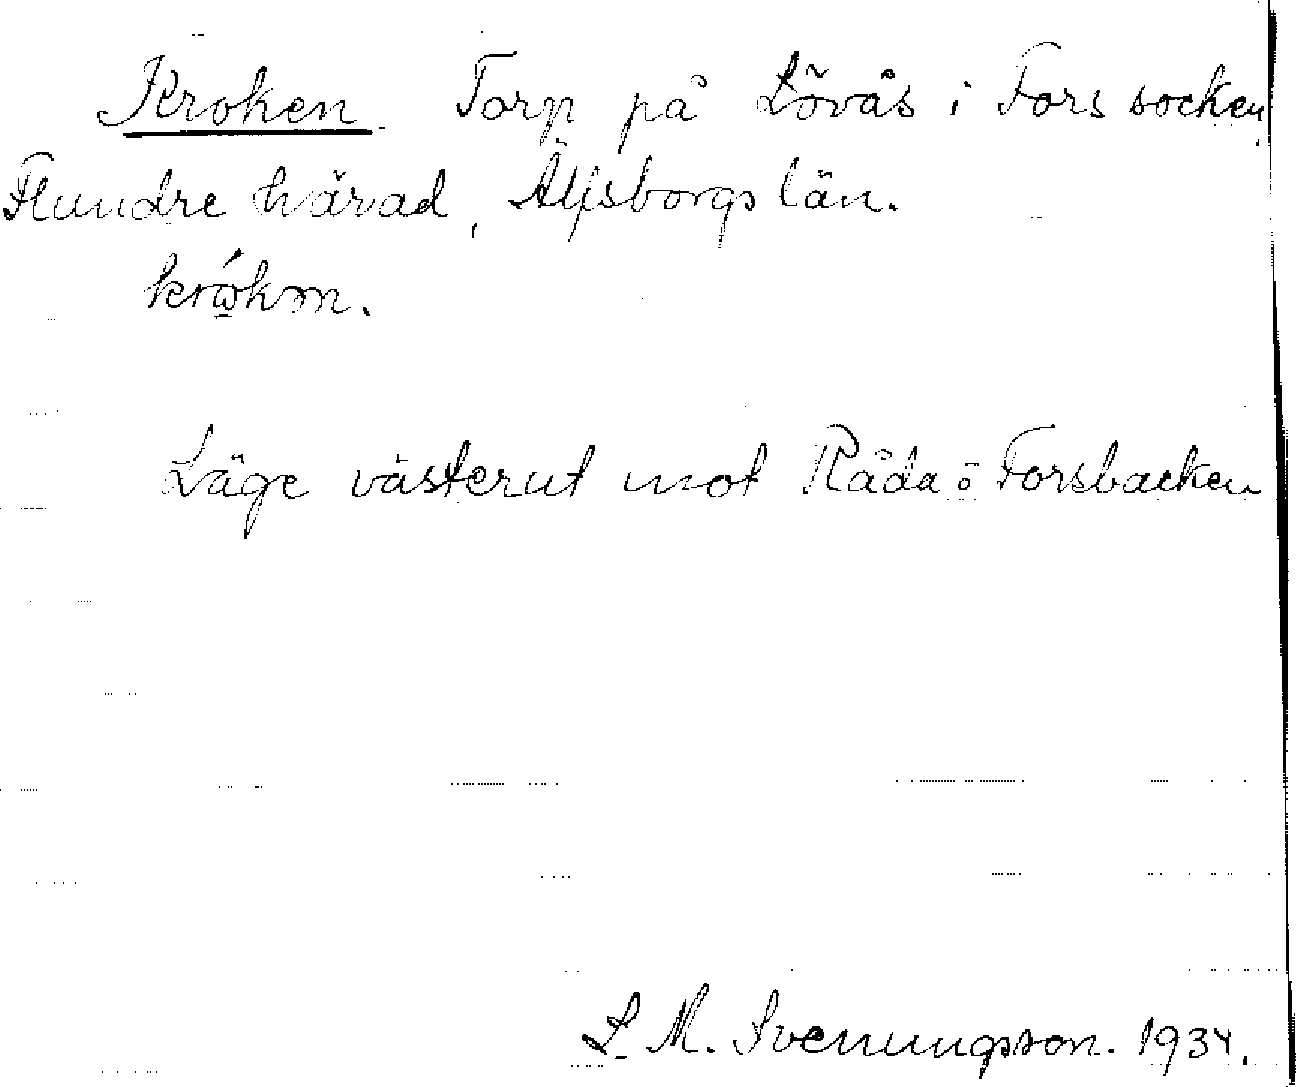 Kroken. Torp på Lövås i Fors socken,
Flundre härad, Älfsborgs län.
Läge västerut mot Råda ö Forsbacken
L. M. Svenungsson. 1934.